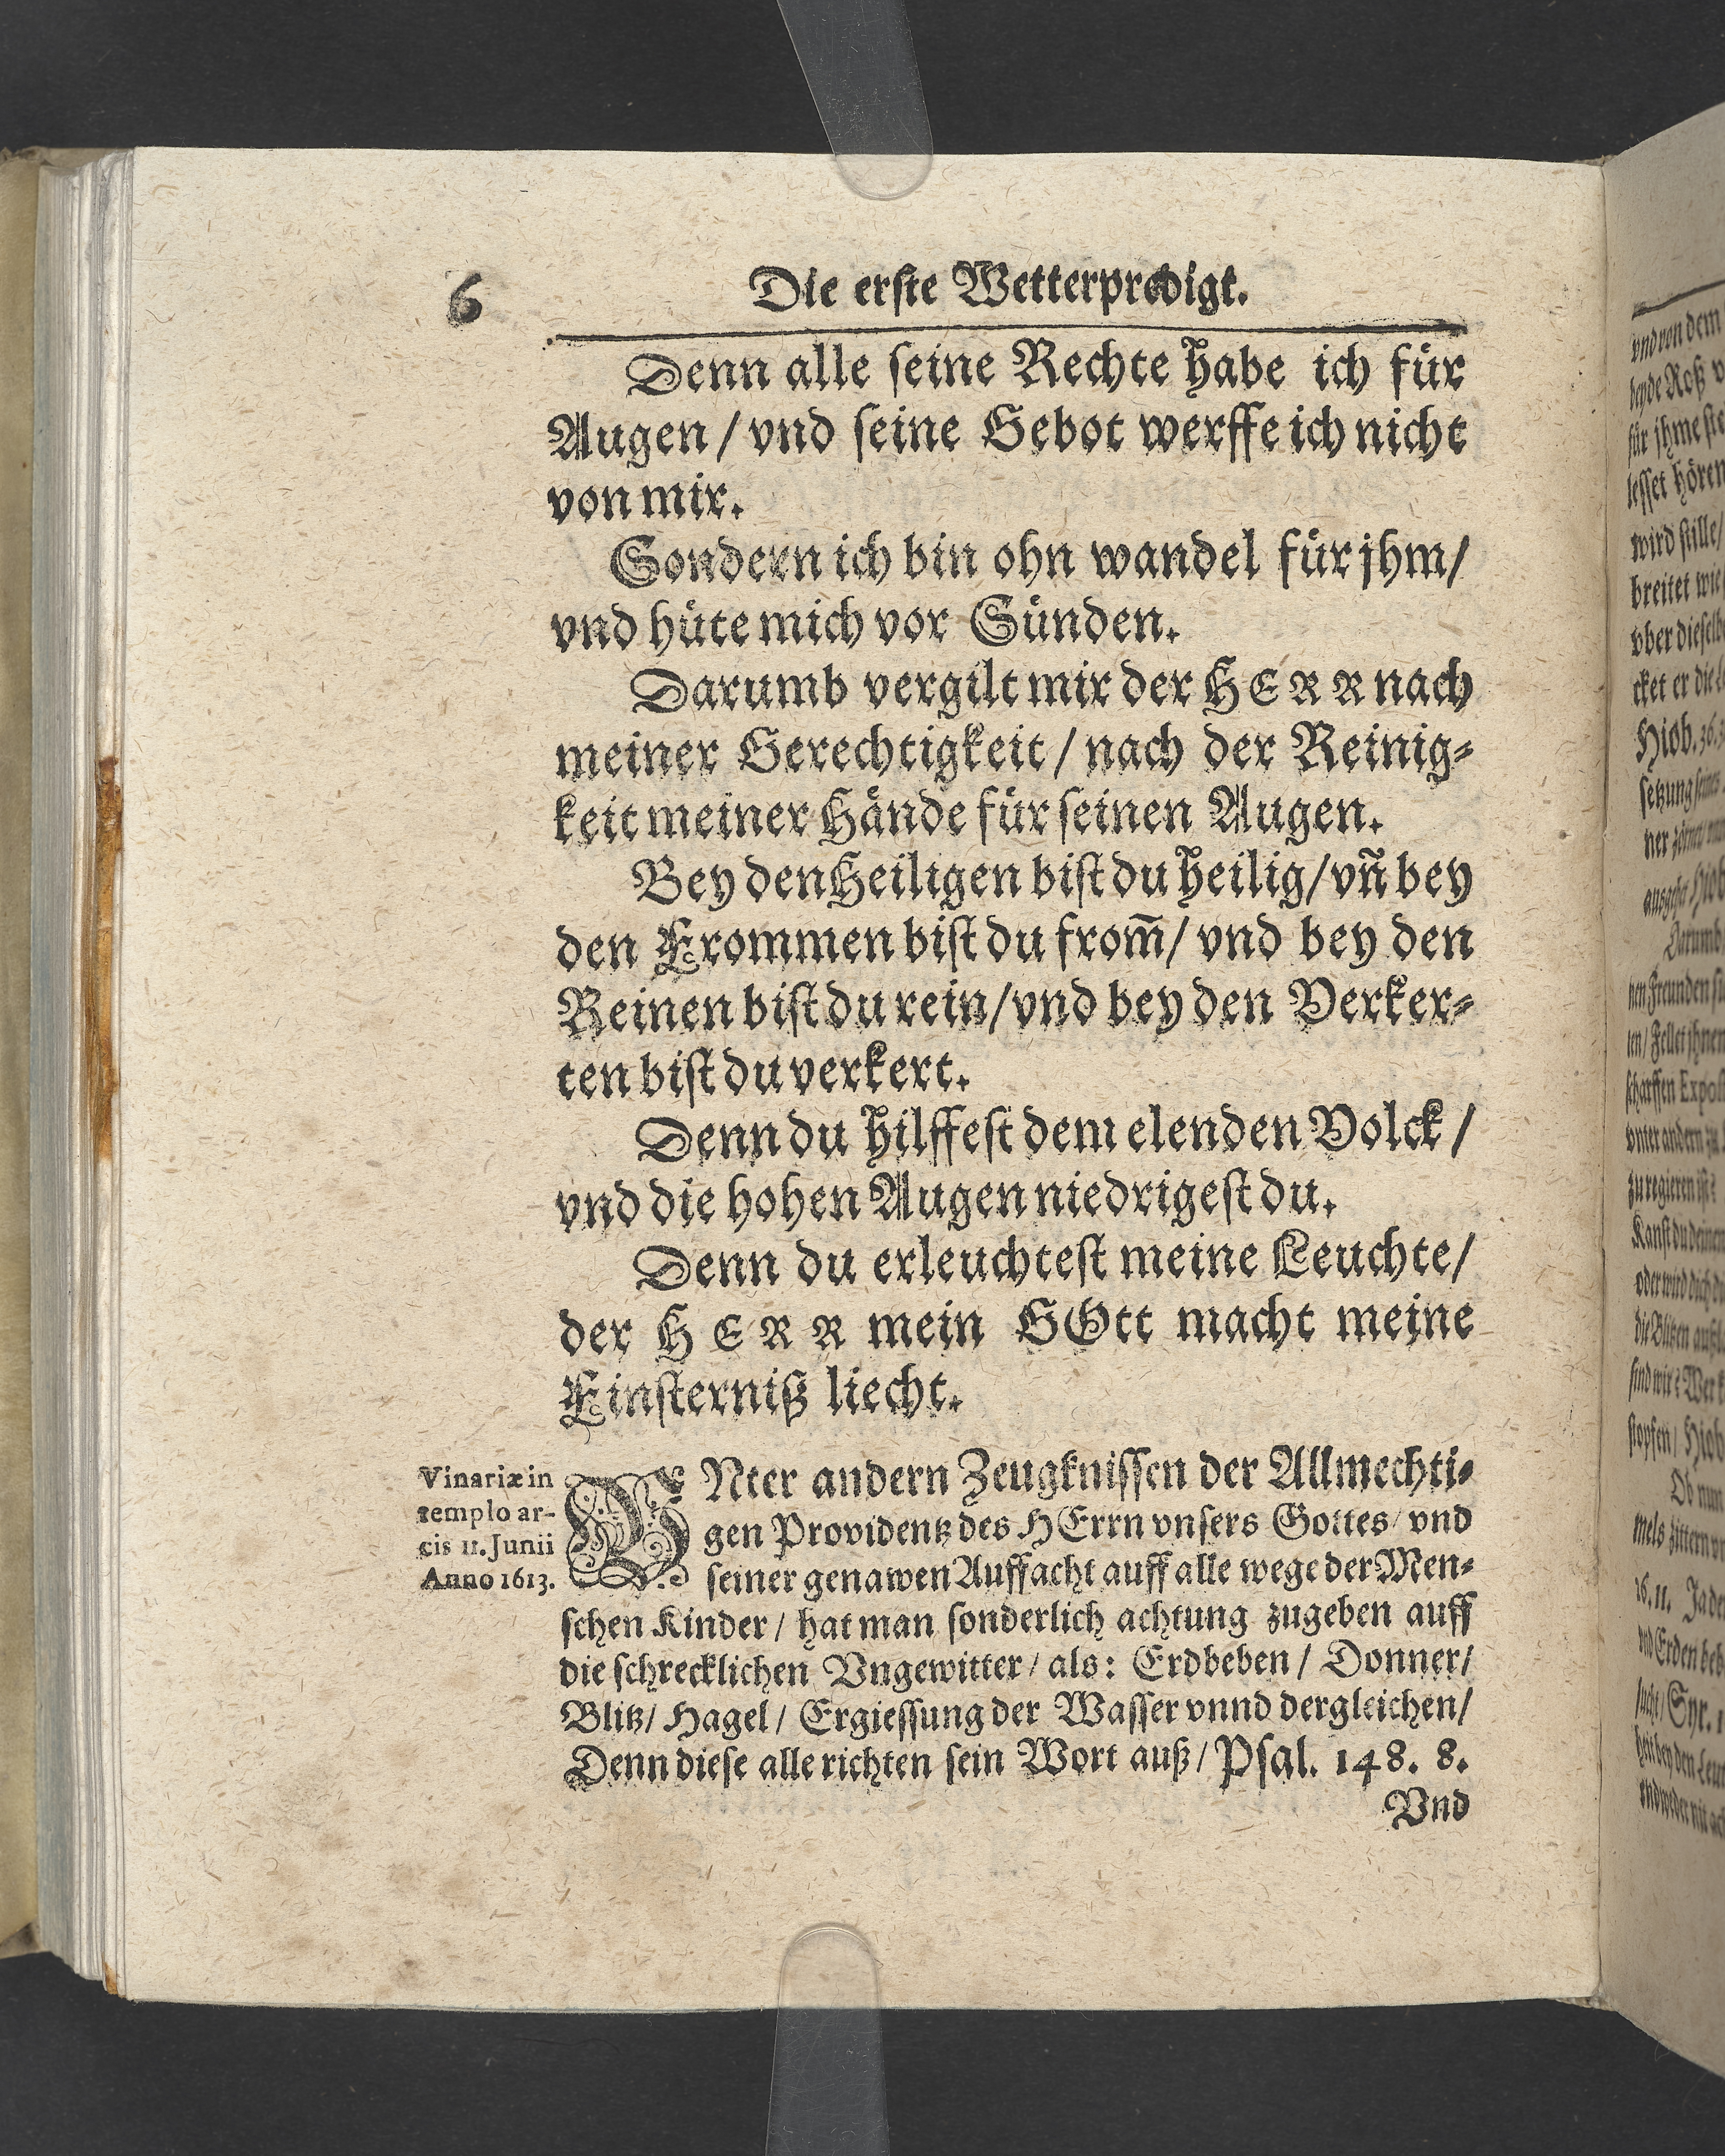 6
Die erste Wetterpredigt.
Denn alle seine Rechte habe ich für
Augen / vnd seine Gebot werffe ich nicht
von mir.
Sondern ich bin ohn wandel für jhm/
vnd hüte mich vor Sünden.
Darumb vergilt mir der HERR nach
meiner Gerechtigkeit / nach der Reinig-
keit meiner Hände für seinen Augen.
Bey den Heiligen bist du heilig/ vñ bey
den Frommen bist du from̃/ vnd bey den
Reinen bist du rein/ vnd bey den Verker-
ten bist du verkert.
Denn du hilffest dem elenden Volck /
vnd die hohen Augen niedrigest du.
Denn du erleuchtest meine Leuchte/
der HERR mein GOtt macht meine
Finsterniß liecht.
Vinariæ in
templo ar-
cis 11. Junii
Anno 1613.
VNter andern Zeugknissen der Allmechti-
gen Providentz des HErrn vnsers Gottes/ vnd
seiner genawen Auffacht auff alle wege der Men-
schen Kinder / hat man sonderlich achtung zugeben auff
die schrecklichen Vngewitter/ als: Erdbeben / Donner/
Blitz/ Hagel / Ergiessung der Wasser vnnd dergleichen/
Denn diese alle richten sein Wort auß/ Psal. 148. 8.
Vnd
vnd von dem
beyde Roß
für jhme
lesset hören
wird stille/
breitet wie
vber
cket er die
Hiob. 36.
setzung
ner
Darumb
nen Freunden
len/
scharffen
vnter andern zu
zu regieren ist?
Kanst du
oder wird dich
die Blitzen
sind wir?
stopfen/ Hiob
Ob nun
mels zittern
Ja
vnd Erden
Syr.